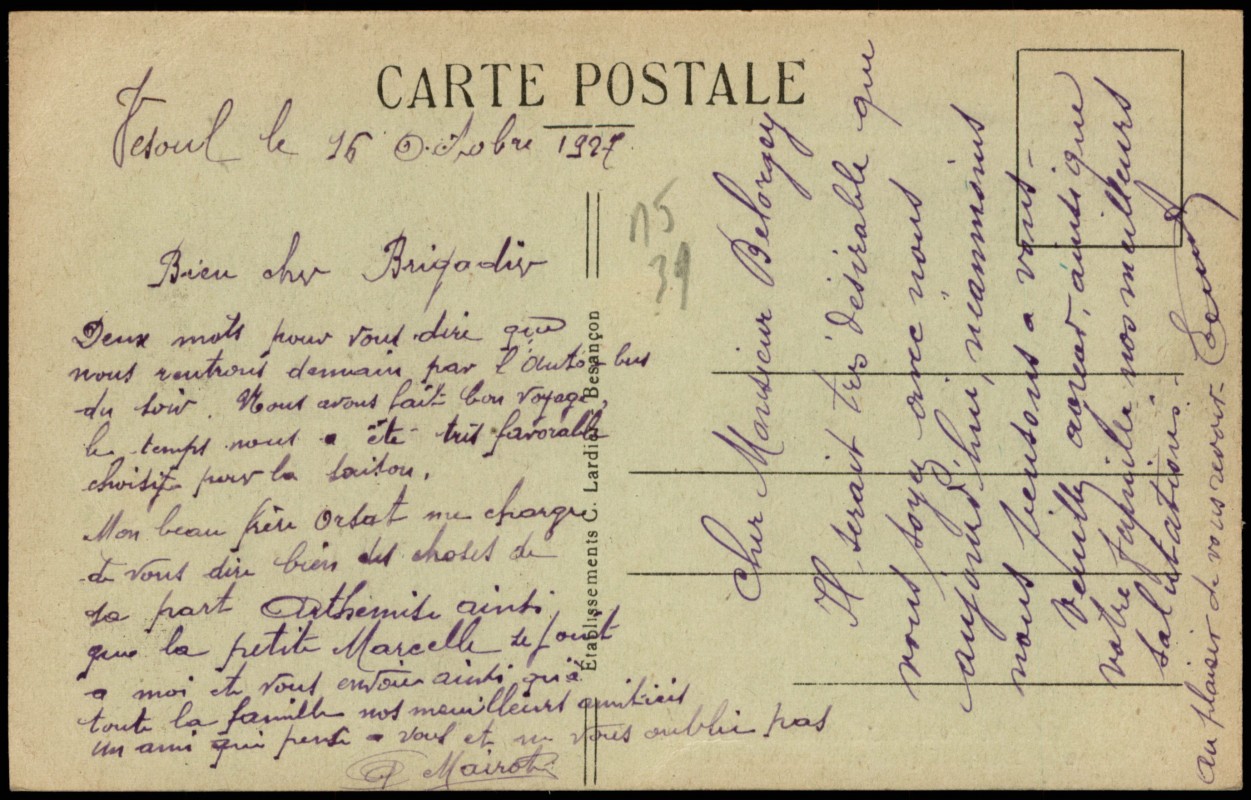 CARTE POSTALE
Vesoul le 16 Octobre 1927
Bien cher Brigadier
Deux mots pour vous dire que
nous rentrons demain par l'auto-bus
du soir. Nous avons fait bon voyage,
le temps nous a été très favorable
choisit pour la saison.
Mon beau frère Orsat me charge
de vous dire bien des choses de
sa part Arthémise ainsi
que la petite Marcelle se joint
a moi et vous envoie ainsi qu'à
toute la famille nos meuilleurs amitiés
un ami qui pense a vous et ne vous oublie pas
Mairot
Etablissements C. Lardier Besançon
n5
39
Cher Monsieur Belorgey
Il serait très désirable que
vous soyez avec nous
aujourd'hui, néanmoins
nous pensons a vous -
Veuillez agréer, ainsi que
votre famille nos meilleurs
salutations. -
au plaisir de vous revoir -